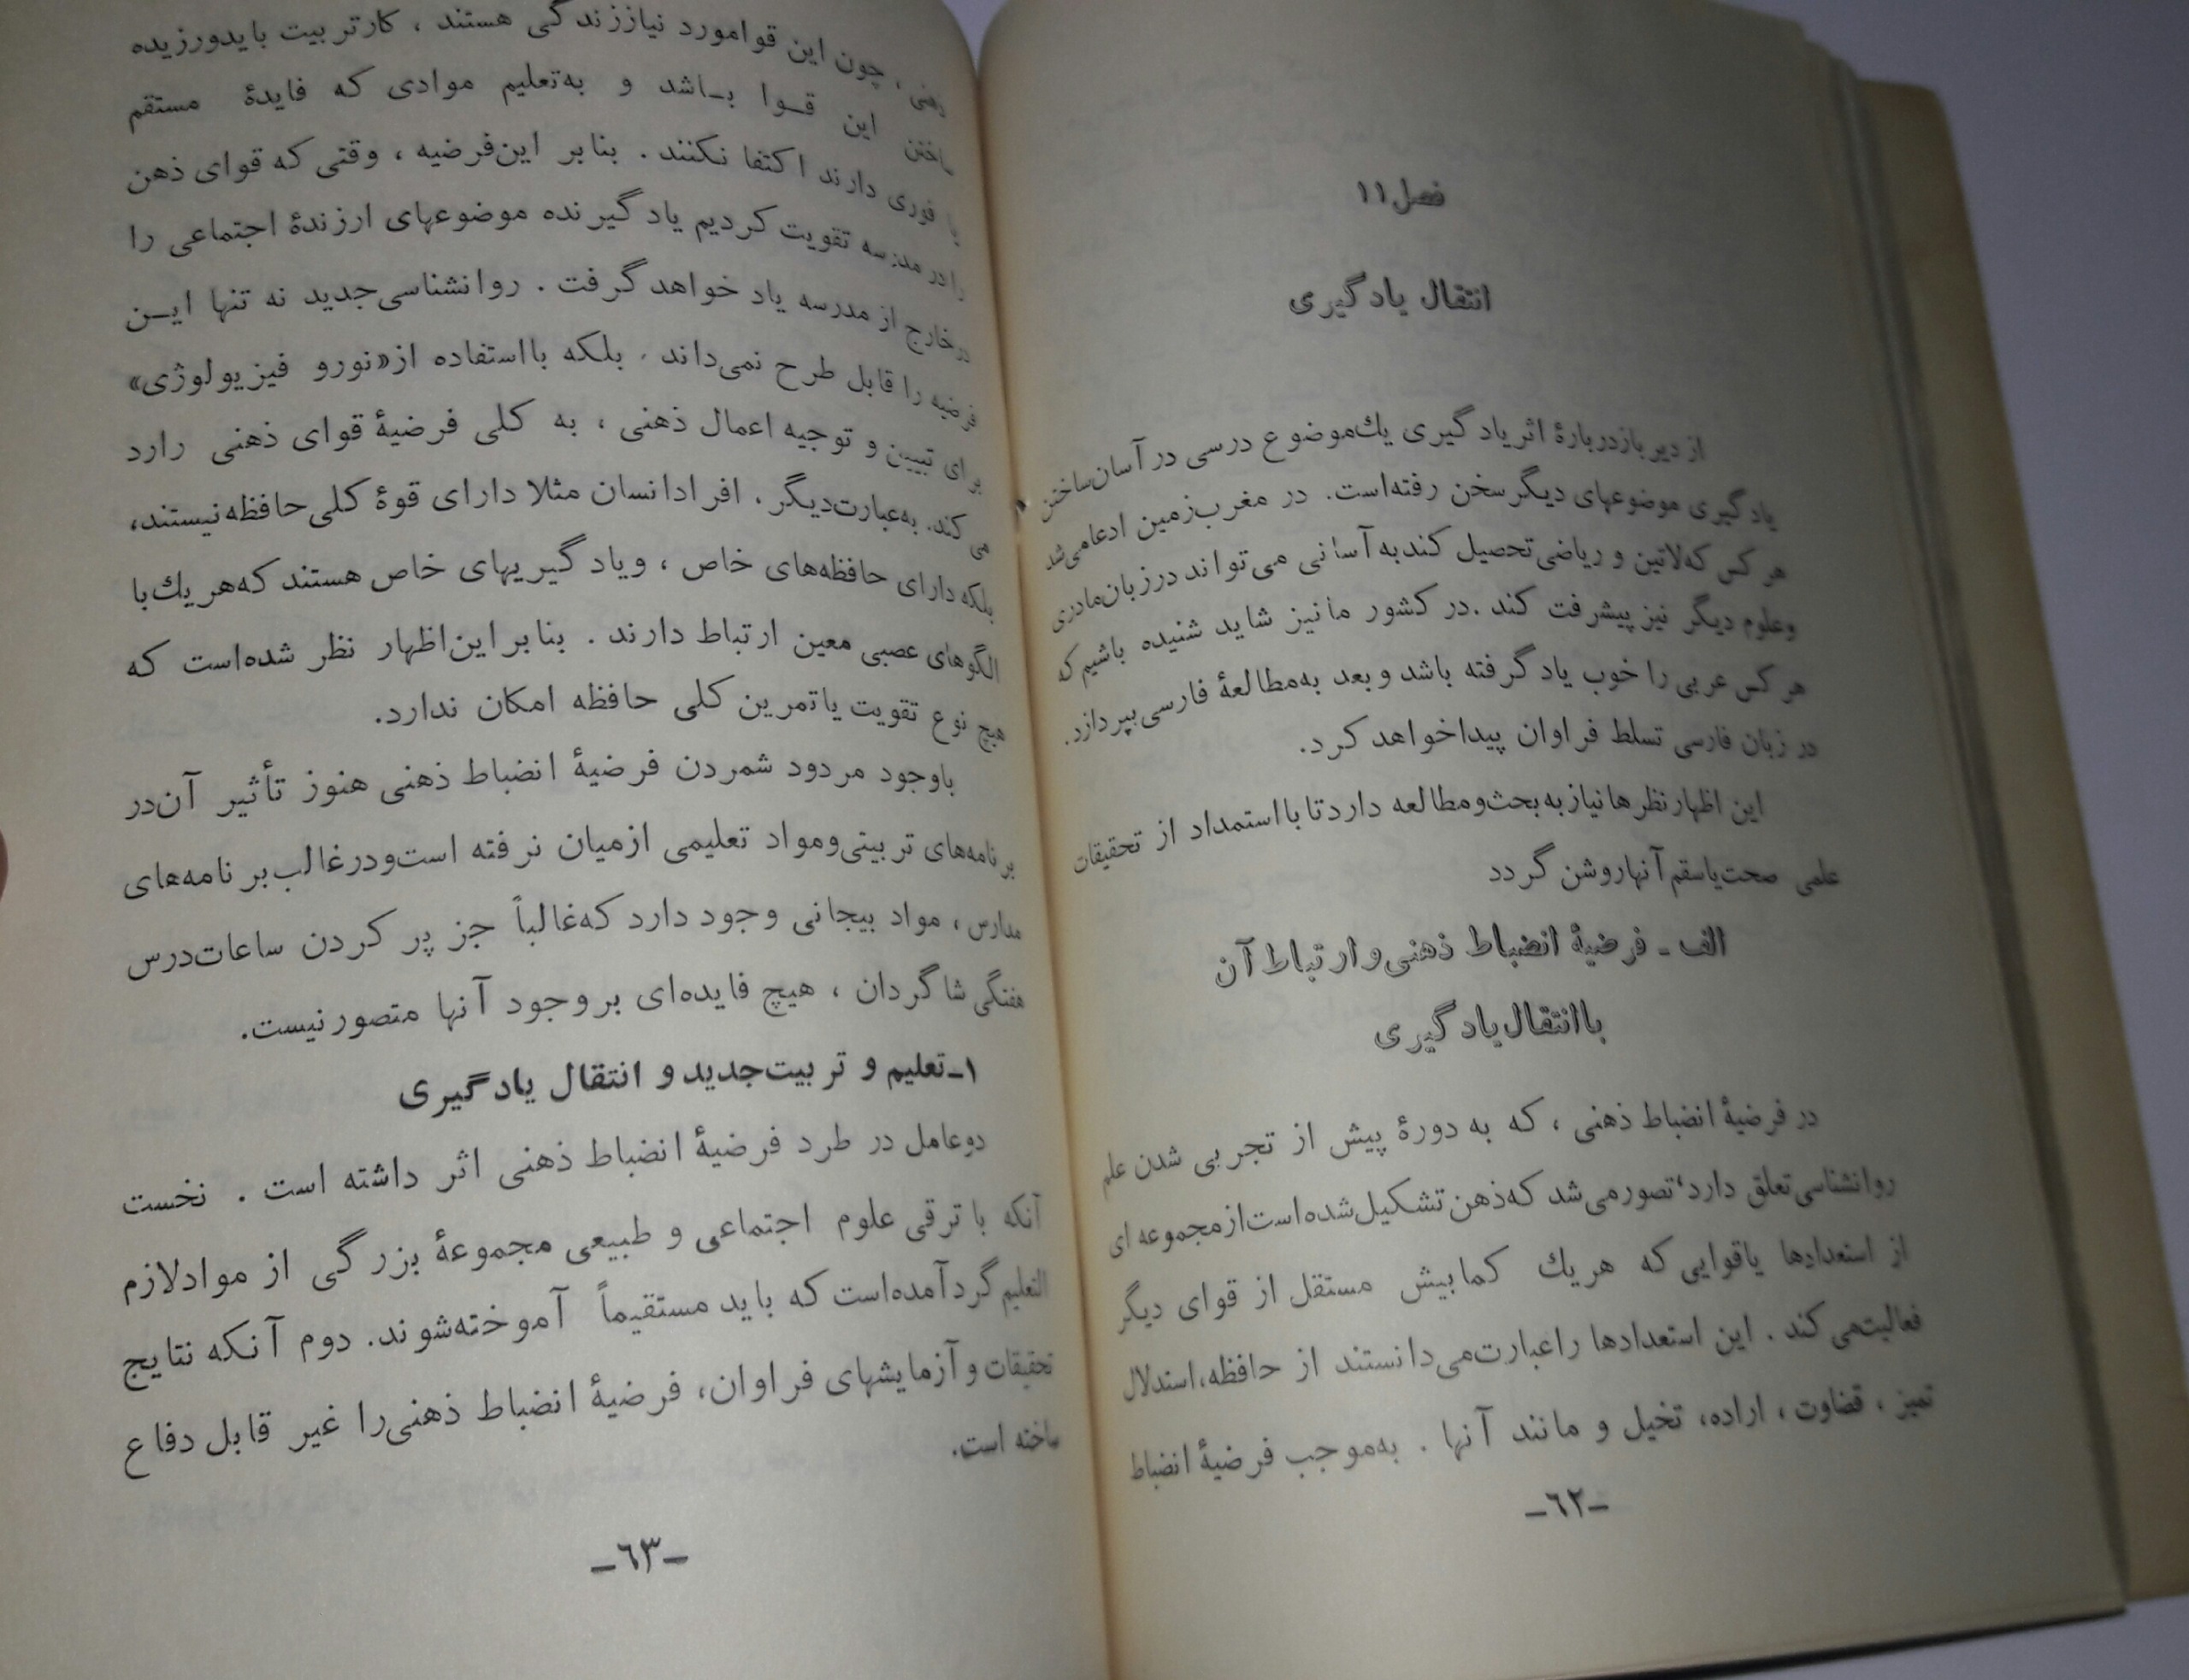 فصل ۱۱
انتقال یادگیری
از دیرباز دربارهٔ اثر یادگیری یك موضوع درسی در آسان ساختن
یادگیری موضوعهای دیگر سخن رفته است. در مغرب زمین ادعا می شد
هر کس که لاتین و ریاضی تحصیل کند به آسانی می تواند در زبان مادری
و علوم دیگر نیز پیشرفت کند. در کشور ما نیز شاید شنیده باشیم که
هر کس عربی را خوب یاد گرفته باشد و بعد به مطالعهٔ فارسی بپردازد.
در زبان فارسی تسلط فراوان پیدا خواهد کرد.
این اظهار نظرها نیاز به بحث و مطالعه دارد تا با استمداد از تحقیقات
علمی صحت یا سقم آنها روشن گردد
الف ـ فرضیهٔ انضباط ذهنی و ارتباط آن
با انتقال یادگیری
در فرضیهٔ انضباط ذهنی ، که به دورهٔ پیش از تجربی شدن علم
روانشناسی تعلق دارد، تصور می شد که ذهن تشکیل شده است از مجموعه ای
از استعدادها یا قوایی که هر یك کمابیش مستقل از قوای دیگر
فعالیت می کند . این استعدادها را عبارت می دانستند از حافظه، استدلال
تمیز ، قضاوت ، اراده، تخیل و مانند آنها . به موجب فرضیهٔ انضباط
ـ۶۲ـ
ذهنی ، چون این قوا مورد نیاز زندگی هستند ، کار تربیت باید ورزیده
ساختن این قوا باشد و به تعلیم موادی که فایدهٔ مستقم
یا فوری دارند اکتفا نکنند . بنابر این فرضیه ، وقتی که قوای ذهن
را در مدرسه تقویت کردیم یادگیرنده موضوعهای ارزندهٔ اجتماعی را
در خارج از مدرسه یاد خواهد گرفت . روانشناسی جدید نه تنها ایـن
فرضیه را قابل طرح نمی داند ، بلکه با استفاده از «نورو فیزیولوژی»
برای تبیین و توجیه اعمال ذهنی ، به کلی فرضیهٔ قوای ذهنی را رد
می کند. به عبارت دیگر ، افراد انسان مثلا دارای قوهٔ کلی حافظه نیستند،
بلکه دارای حافظه های خاص ، و یادگیریهای خاص هستند که هر یك با
الگوهای عصبی معین ارتباط دارند . بنابر این اظهار نظر شده است که
هیچ نوع تقویت یا تمرین کلی حافظه امکان ندارد.
باوجود مردود شمردن فرضیهٔ انضباط ذهنی هنوز تأثیر آن در
برنامه های تربیتی و مواد تعلیمی از میان نرفته است و در غالب برنامه های
مدارس ، مواد بیجانی وجود دارد که غالباً جز پر کردن ساعات درس
هفتگی شاگردان ، هیچ فایده ای بر وجود آنها متصور نیست.
۱ـ تعلیم و تربیت جدید و انتقال یادگیری
دو عامل در طرد فرضیهٔ انضباط ذهنی اثر داشته است . نخست
آنکه با ترقی علوم اجتماعی و طبیعی مجموعهٔ بزرگی از مواد لازم
التعلیم گردآمده است که باید مستقیماً آموخته شوند. دوم آنکه نتایج
تحقیقات و آزمایشهای فراوان، فرضیهٔ انضباط ذهنی را غیر قابل دفاع
ساخته است.
ـ۶۳ـ